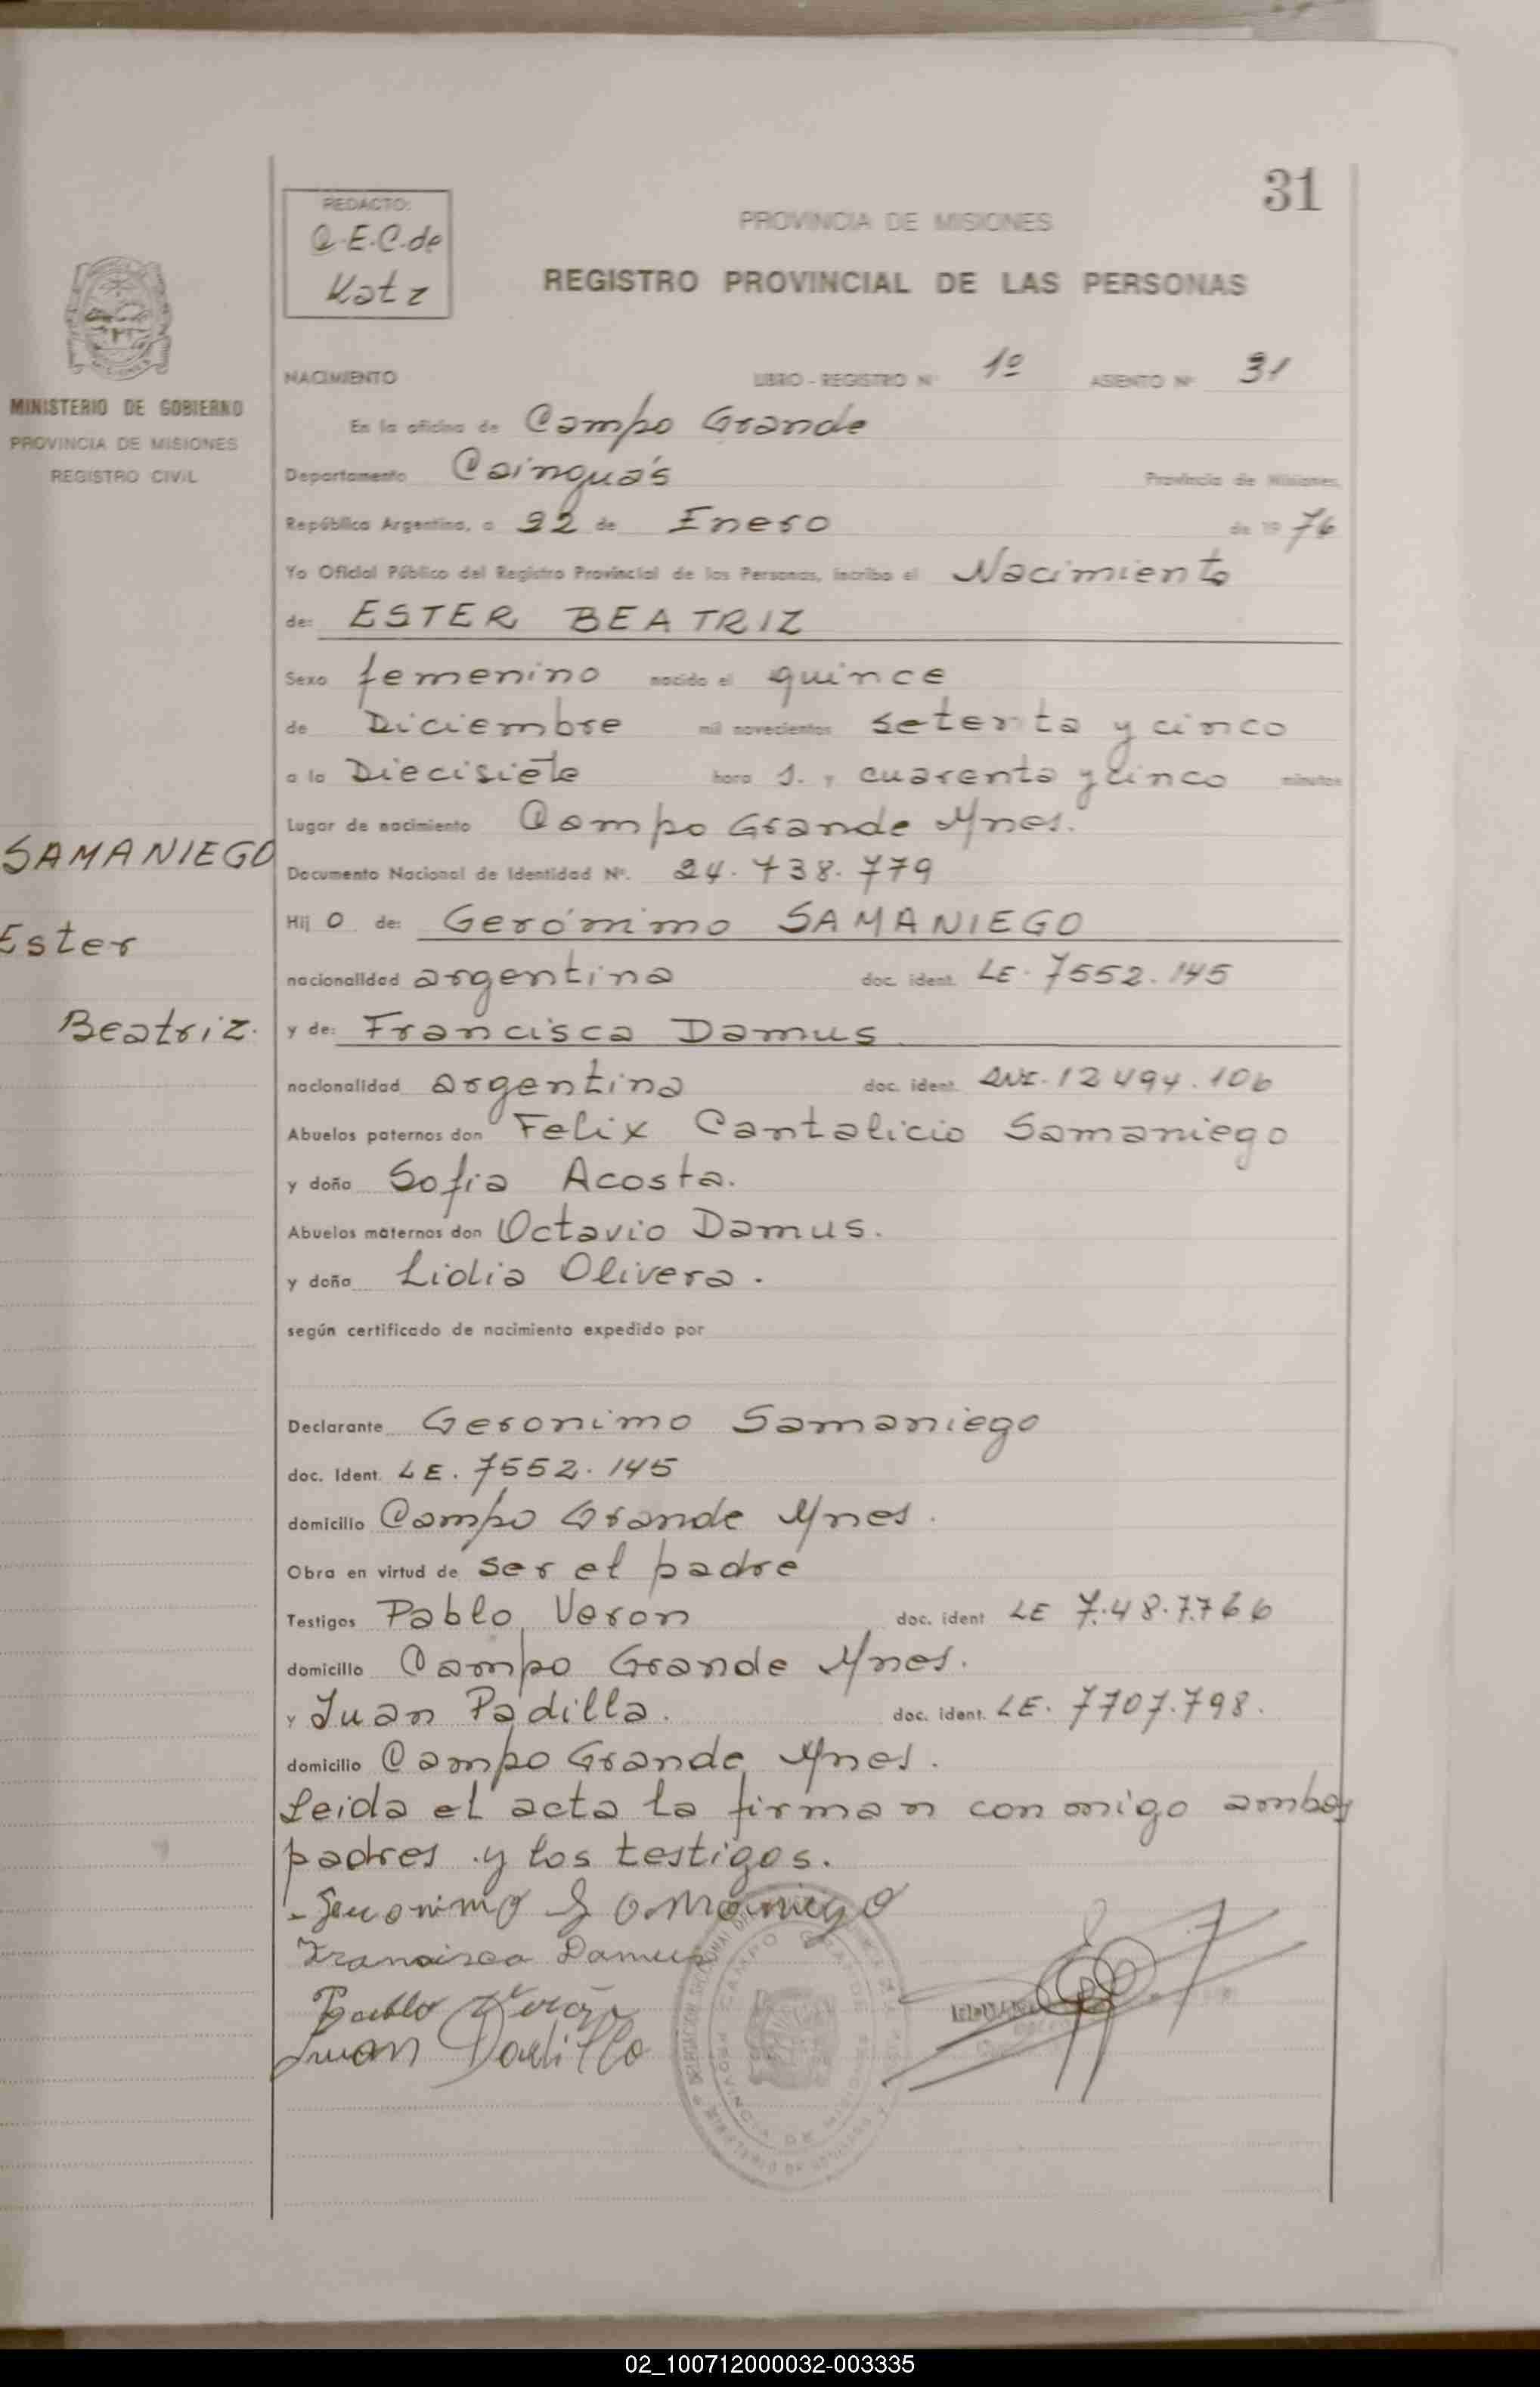 31
REDACTO:
Q.E.C. de
Katz
PROVINCIA DE MISIONES
REGISTRO PROVINCIAL DE LAS PERSONAS
MINISTERIO DE GOBIERNO
PROVINCIA DE MISIONES
REGISTRO CIVIL
NACIMIENTO LIBRO - REGISTRO Nº 1º ASIENTO Nº 31
En la oficina de Campo Grande
Departamento Cainguás Provincia de Misiones,
República Argentina, a 22 de Enero de 19 76
Yo Oficial Público del Registro Provincial de las Personas, incribo el Nacimiento
de: ESTER BEATRIZ
Sexo femenino nacido el quince
de Diciembre mil novecientos setenta y cinco
a la Diecisiete hora s. y cuarenta y cinco minutos
Lugar de nacimiento Campo Grande Mnes.
SAMANIEGO
Ester
Beatriz.
Documento Nacional de Identidad Nº. 24.738.779
Hij o de: Gerónimo SAMANIEGO
nacionalidad argentina doc. ident. LE. 7552.145
y de: Francisca Damus
nacionalidad argentina doc. ident. 12494.106
Abuelos paternos don Felix Cantalicio Samaniego
y doña Sofia Acosta.
Abuelos maternos don Octavio Damus.
y doña Lidia Olivera.
según certificado de nacimiento expedido por
Declarante Geronimo Samaniego
doc. Ident. LE. 7552.145
domicilio Campo Grande Mnes.
Obra en virtud de ser el padre
Testigos Pablo Veron doc. ident LE 7.48.7.766
domicilio Campo Grande Mnes.
y Juan Padilla. doc. ident. LE. 7707.798.
domicilio Campo Grande Mnes.
Leida el acta la firman conmigo ambos
padres y los testigos.
Geronimo Samaniego
Francisca Damus
Pablo Verón
Juan Padilla
CAMPO GRANDE
PROVINCIA DE MISIONES
02_100712000032-003335